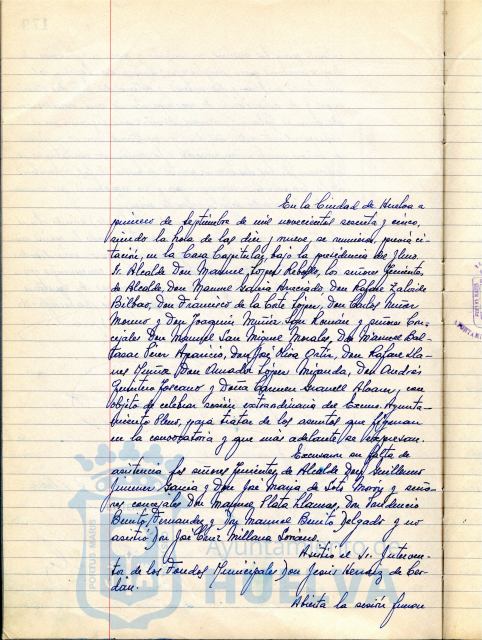 En la Ciudad de Huelva a
primero de Septiembre de mil novecientos sesenta y cinco,
siendo la hora de las diez y nueve, se reunieron, previa ci-
tación, en la Casa Capitular, bajo la presidencia del Ilmo.
Sr. Alcalde Don Manuel López Rebollo, los señores Tenientes
de Alcalde, Don Manuel Don Rafael
Bilbao, Don Francisco de la Corte López, Don Carlos
Moreno y Don Joaquín San Román y señores Con-
cejales Don Manuel San Miguel Morales, Don Manuel Bal-
tasar Pérez Aparicio, Don José Ortiz, Don Rafael Lla-
nes Muñoz, Don Amador López Miranda, Don Andrés
Quintero Toscano y Doña Carmen Alvarez, con
objeto de celebrar sesión extraordinaria del Excmo. Ayunta-
miento Pleno, para tratar de los asuntos que figuran
en la convocatoria y que mas adelante se expresan.
Excusaron su falta de
asistencia los señores Tenientes de Alcalde Don Guillermo
Jimenez García y Don José María de Soto y seño-
res concejales Don Manuel Plata Llamas, Don
Benito Fernandez y Don Manuel Benito Delgado y no
asistió Don José Millano
Asistió el Sr. Interven-
tor de los Fondos Municipales Don Jesús de Cer-
dán.
Abierta la sesión fueron
Ayuntamiento de
HUELVA
PORTUS MARIS
179